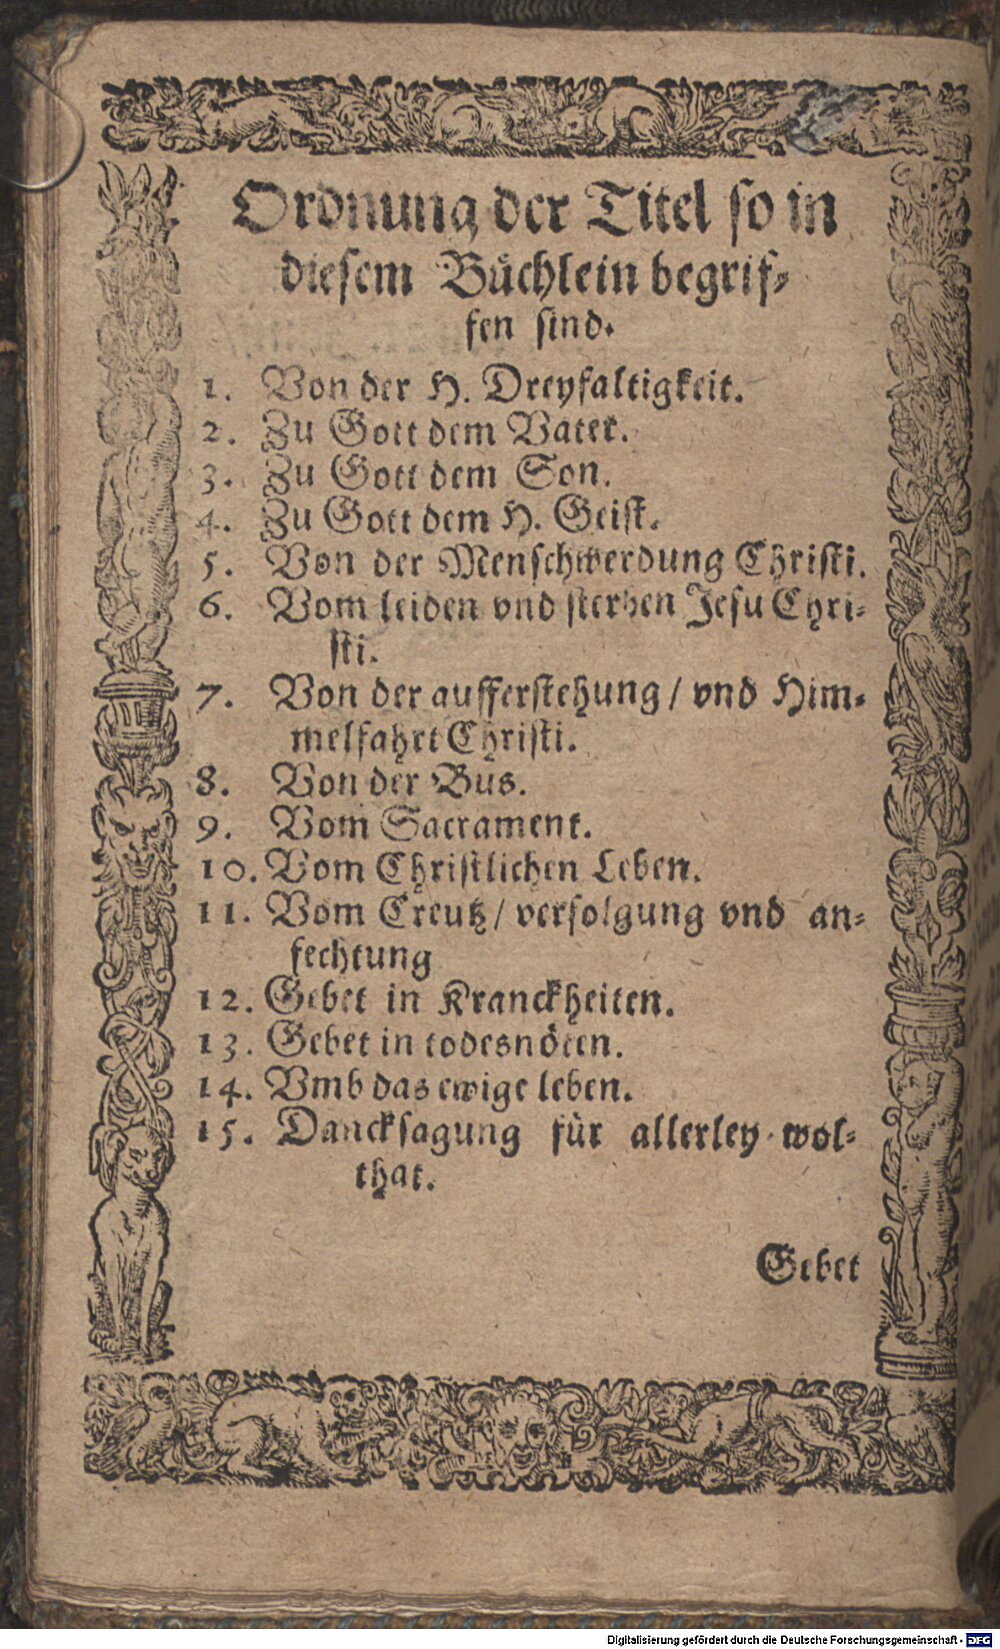 Ordnung der Titel so in
diesem Bůchlein begrif⸗
fen sind.
1. Von der H. Dreyfaltigkeit.
2. Zu Gott dem Vater.
3. Zu Gott dem Son.
4. Zu Gott dem H. Geist.
5. Von der Menschwerdung Christi.
6. Vom leiden vnd sterben Jesu Chri⸗
sti.
7. Von der aufferstehung / vnd Him⸗
melfahrt Christi.
8. Von der Bus.
9. Vom Sacrament.
10. Vom Christlichen Leben.
11. Vom Creutz / verfolgung vnd an⸗
fechtung
12. Gebet in Kranckheiten.
13. Gebet in todesnöten.
14. Vmb das ewige leben.
15. Dancksagung für allerley wol⸗
that.
Gebet
Digitalisierung gefördert durch die Deutsche Forschungsgemeinschaft - DFG